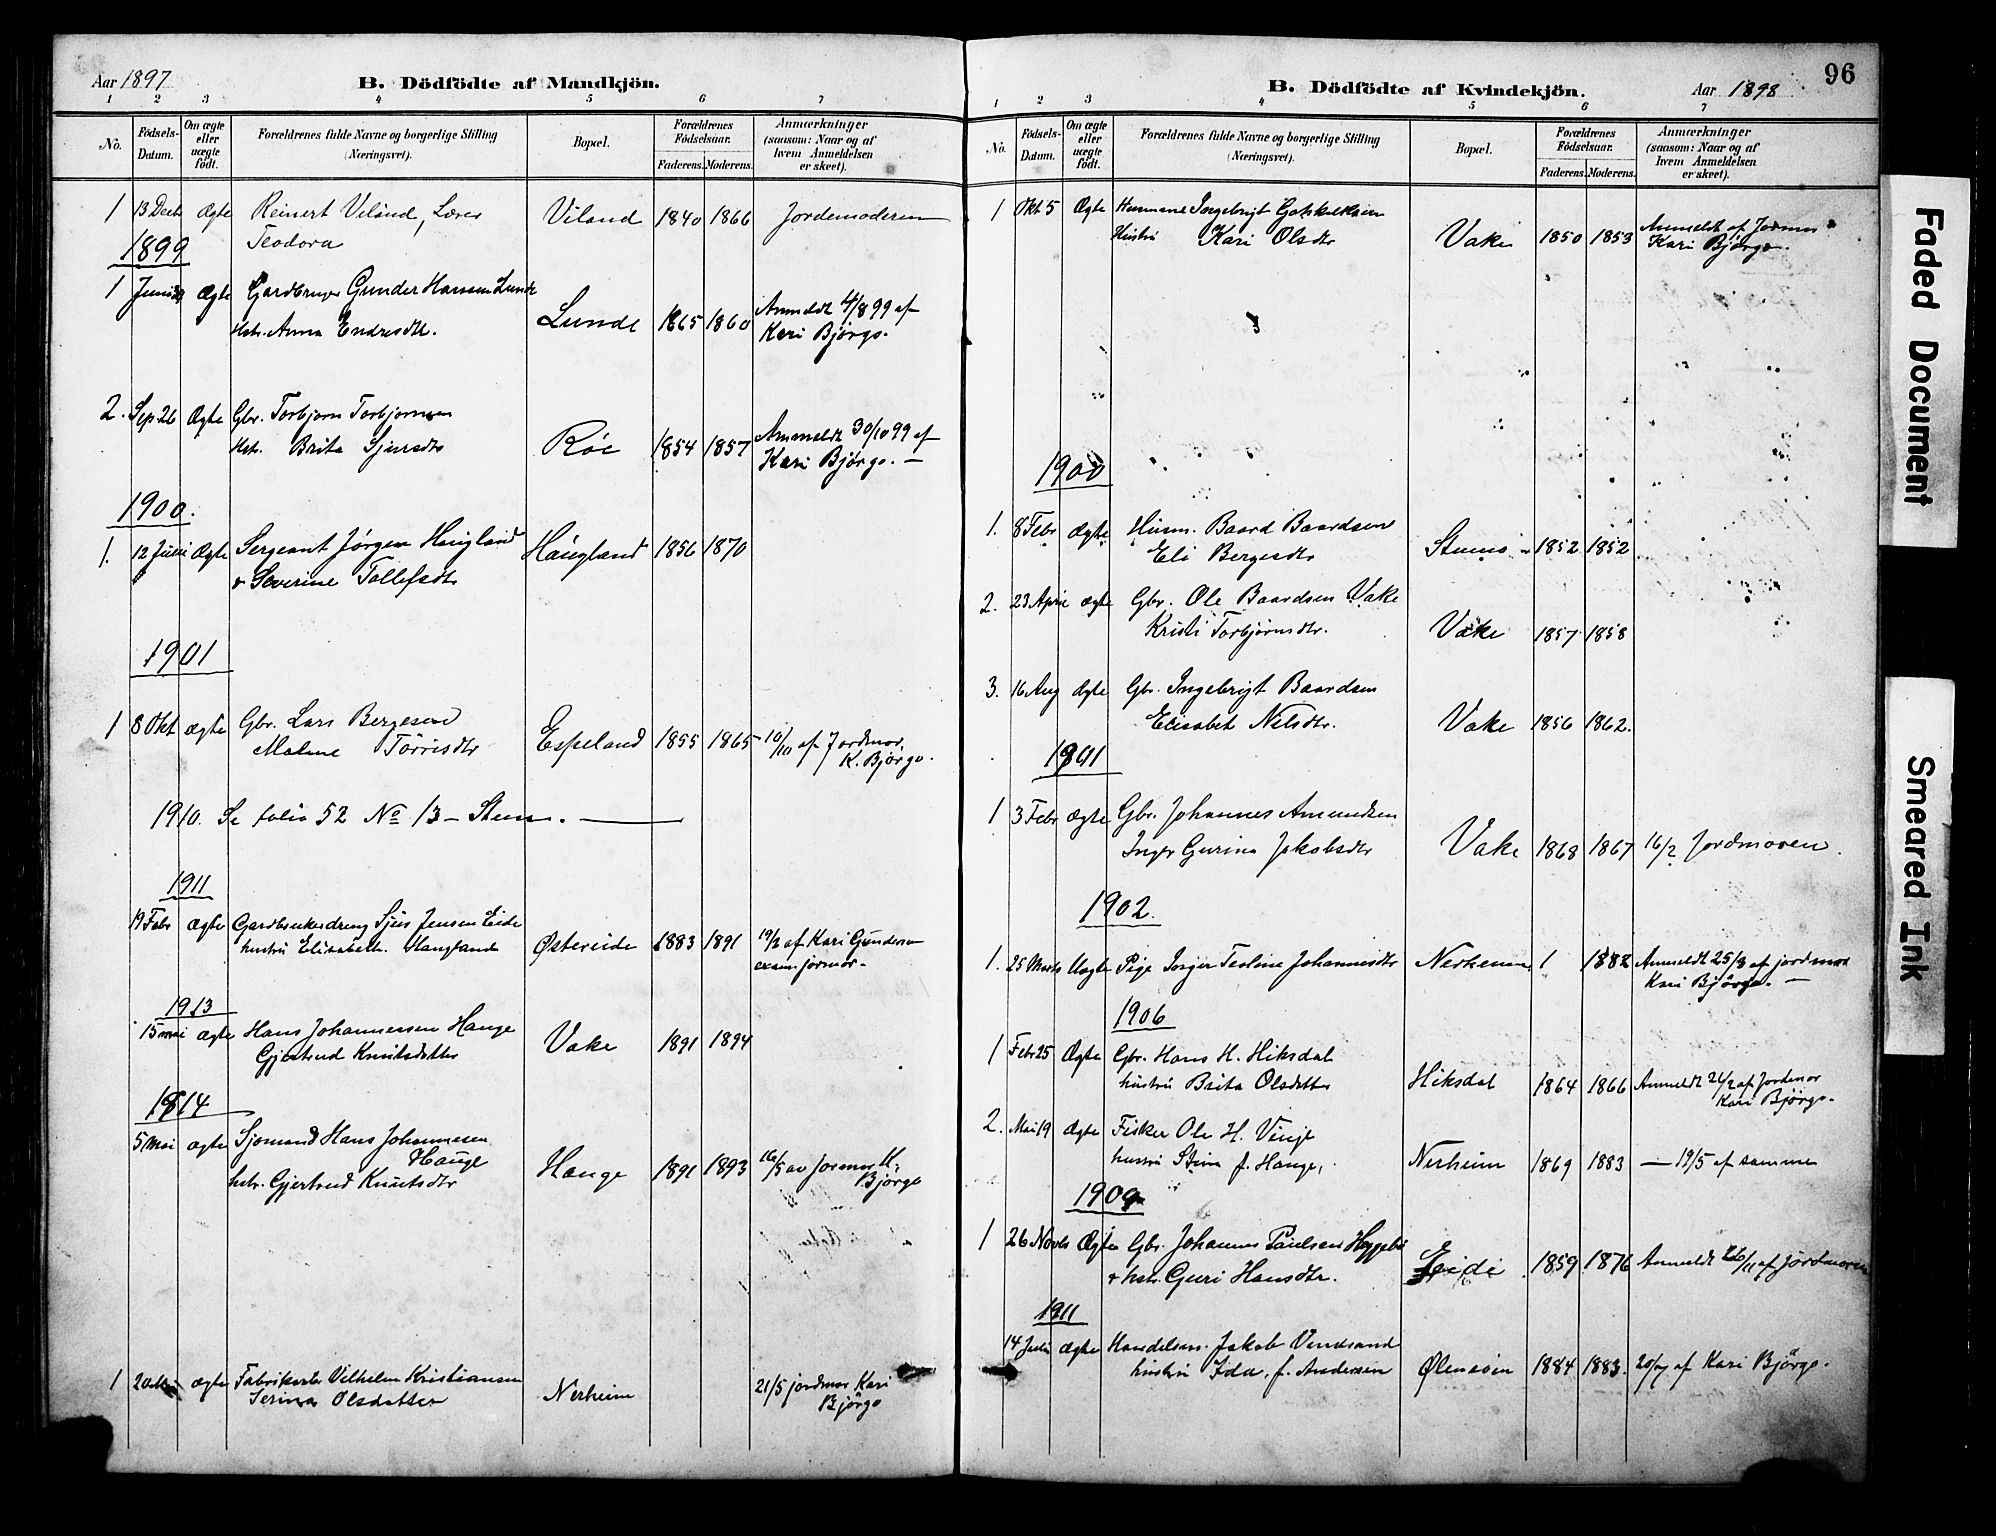 Aar 1897
B. Dödfödte af Mandkjön.
1 2 3 4 5 6 7
No.
Födsels-Datum.
Om ægte eller uægte födt.
Forældrenes fulde Navne og borgerlige Stilling (Næringsvei).
Bopæl.
Forældrenes Födselsaar.
Faderens. Moderens.
Anmærkninger (saasom: Naar og af hvem Anmeldelsen er skeet).
1 13 Decb Ægte Reinert Viland, Lærer Viland 1840 1866 Jordemoderen
Teodora
1899
1 Juni Ægte Gardbruger Gunder Hansen Lunde
Hst. Anna Endresdtr. Lunde 1865 1860 Anmeldt 4/8 99 af
Kari Bjørgo.
2. Sep. 26 Ægte Gbr. Torbjørn Torbjørnsen
Hst. Brita Sjursdtr Røe 1854 1857 Anmeldt 30/10 99 af
Kari Bjørgo. —
1900.
1. 12 Juni Ægte Sergeant Jørgen Haugland Haugland 1856 1870
& Severine Tollefsdtr
1901
1 8 Okt ægte Gbr. Lars Bergesen
Malene Tørrisdtr Espeland 1855 1865 10/10 af Jordmor.
K. Bjørgo.
1910. Se folio 52 No 13 – Stum. —
1911
19 Febr ægte Gardbrukerdreng Sjur Jensen Eide
hustru Elisabeth Haugland Østereide 1883 1891 19/2 af Kari Gundersen
exam jormor.
1913
15 mai ægte Hans Johannessen Hauge
Gjertrud Knutsdatter Vake 1891 1894
1914
5 Mai ægte Sjomand Hans Johannesen
Hauge
hstr. Gjertrud Knutsdtr Hauge 1891 1893 16/5 av Jormor K.
Bjørgo
1 20 ægte Fabrikarb Vilhelm Kristiansen
Serina Olsdatter Nerheim 21/5 jordmor Kari
Bjørgo
96
B. Dödfödte af Kvindekjön.
Aar 1898
1 2 3 4 5 6 7
No.
Födsels-Datum.
Om ægte eller uægte födt.
Forældrenes fulde Navne og borgerlige Stilling (Næringsvei).
Bopæl.
Forældrenes Födselsaar.
Faderens. Moderens.
Anmærkninger (saasom: Naar og af hvem Anmeldelsen er skeet).
1 Okt 5 Ægte Husmand Ingebrigt Gotskalksen
Hustru Kari Olsdtr Vake 1850 1853 Anmeldt af Jormor
Kari Bjørgo.
1900
1. 8 Febr ægte Husm. Baard Baardsen
Eli Bergesdtr 1852 1852
2. 23 April ægte Gbr. Ole Baardsen Vake
Kristi Torbjørnsdtr. Vake 1857 1858
3. 16 Aug ægte Gbr. Ingebrigt Baardsen
Elisabet Nilsdtr. Vake 1856 1862.
1901
1 3 Febr ægte Gbr. Johannes Amundsen
Inger Gurina Jakobsdtr Vake 1868 1867 16/2 Jordmoren.
1902.
1. 25 Marts Uægte Pige Inger Teoline Johannesdtr Nerheim 1882 Anmeldt 25/3 af jordmor
Kari Bjørgo. —
1906
1 Febr 25 Ægte Gbr. Hans H. Hiksdal
hustru Brita Olsdatter Hiksdal 1864 1866 Anmeldt 26/2 af Jordmor
Kari Bjørgo.
2. Mai 19 Ægte Fisker Ole H. Vinje
hustru Stina f. Hauge, Nerheim 1869 1883 — 19/5 af samme
1909
1 26 Novbr Ægte Gbr. Johannes Paulsen Heggebø
& hstr. Guri Hansdtr. Eide 1859 1876 Anmeldt 26/11 af Jordmoren
1911
14 Juli ægte Handelsm. Jakob Vundsand
hustru Ida, f. Andersen Ølensøen 1884 1883. 20/7 af Kari Bjørgo.
Faded Document
Smeared Ink